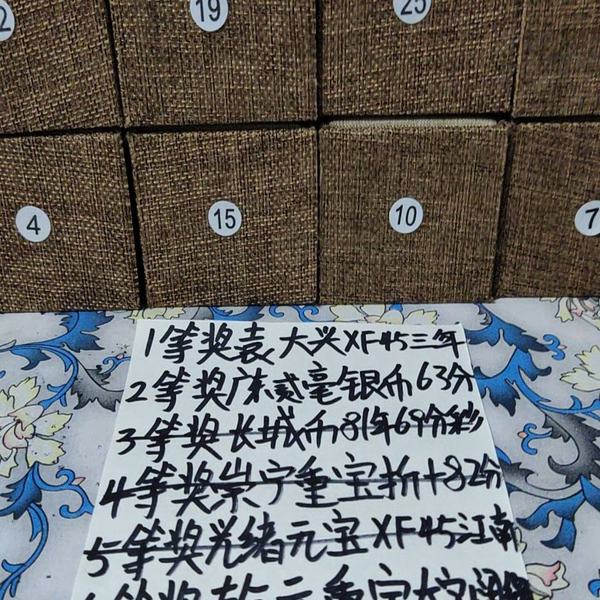 19
25
4
15
10
7
1等奖袁大头XF45三年
2等奖广东贰毫银币63分
3等奖长城币81年69分
4等奖崇宁重宝折十82分
5等奖光绪元宝XF45江南